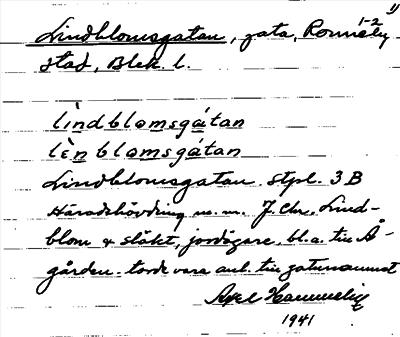 1)
1-2
Lindblomsgatan, gata, Ronneby
stad, Blek. l.
lìndblomsgátan
lènblomsgátan
Lindblomsgatan. stpl. 3 B
Häradshövding m. m. J. Chr. Lind-
blom & släkt, jordägare, bl. a. till Å-
gården. torde vara anl. till gatunamnet
Axel Hammelin
1941